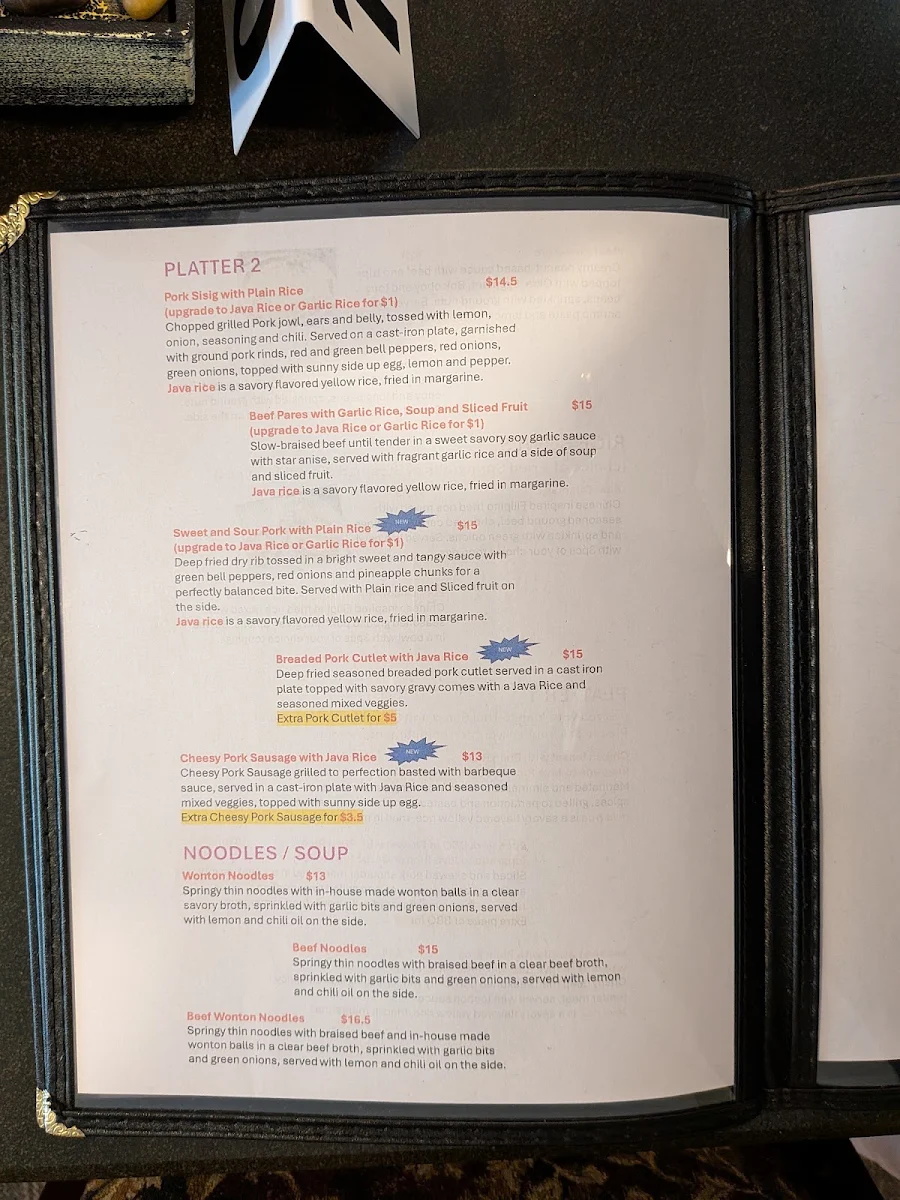 PLATTER 2
Pork Sisig with Plain Rice $14.5
(upgrade to Java Rice or Garlic Rice for $1)
Chopped grilled Pork jowl, ears and belly, tossed with lemon,
onion, seasoning and chili. Served on a cast-iron plate, garnished
with ground pork rinds, red and green bell peppers, red onions,
green onions, topped with sunny side up egg, lemon and pepper.
Java rice is a savory flavored yellow rice, fried in margarine.
Beef Pares with Garlic Rice, Soup and Sliced Fruit $15
(upgrade to Java Rice or Garlic Rice for $1)
Slow-braised beef until tender in a sweet savory soy garlic sauce
with star anise, served with fragrant garlic rice and a side of soup
and sliced fruit.
Java rice is a savory flavored yellow rice, fried in margarine.
Sweet and Sour Pork with Plain Rice NEW $15
(upgrade to Java Rice or Garlic Rice for $1)
Deep fried dry rib tossed in a bright sweet and tangy sauce with
green bell peppers, red onions and pineapple chunks for a
perfectly balanced bite. Served with Plain rice and Sliced fruit on
the side.
Java rice is a savory flavored yellow rice, fried in margarine.
Breaded Pork Cutlet with Java Rice NEW $15
Deep fried seasoned breaded pork cutlet served in a cast iron
plate topped with savory gravy comes with a Java Rice and
seasoned mixed veggies.
Extra Pork Cutlet for $5
Cheesy Pork Sausage with Java Rice NEW $13
Cheesy Pork Sausage grilled to perfection basted with barbeque
sauce, served in a cast-iron plate with Java Rice and seasoned
mixed veggies, topped with sunny side up egg.
Extra Cheesy Pork Sausage for $3.5
NOODLES / SOUP
Wonton Noodles $13
Springy thin noodles with in-house made wonton balls in a clear
savory broth, sprinkled with garlic bits and green onions, served
with lemon and chili oil on the side.
Beef Noodles $15
Springy thin noodles with braised beef in a clear beef broth,
sprinkled with garlic bits and green onions, served with lemon
and chili oil on the side.
Beef Wonton Noodles $16.5
Springy thin noodles with braised beef and in-house made
wonton balls in a clear beef broth, sprinkled with garlic bits
and green onions, served with lemon and chili oil on the side.